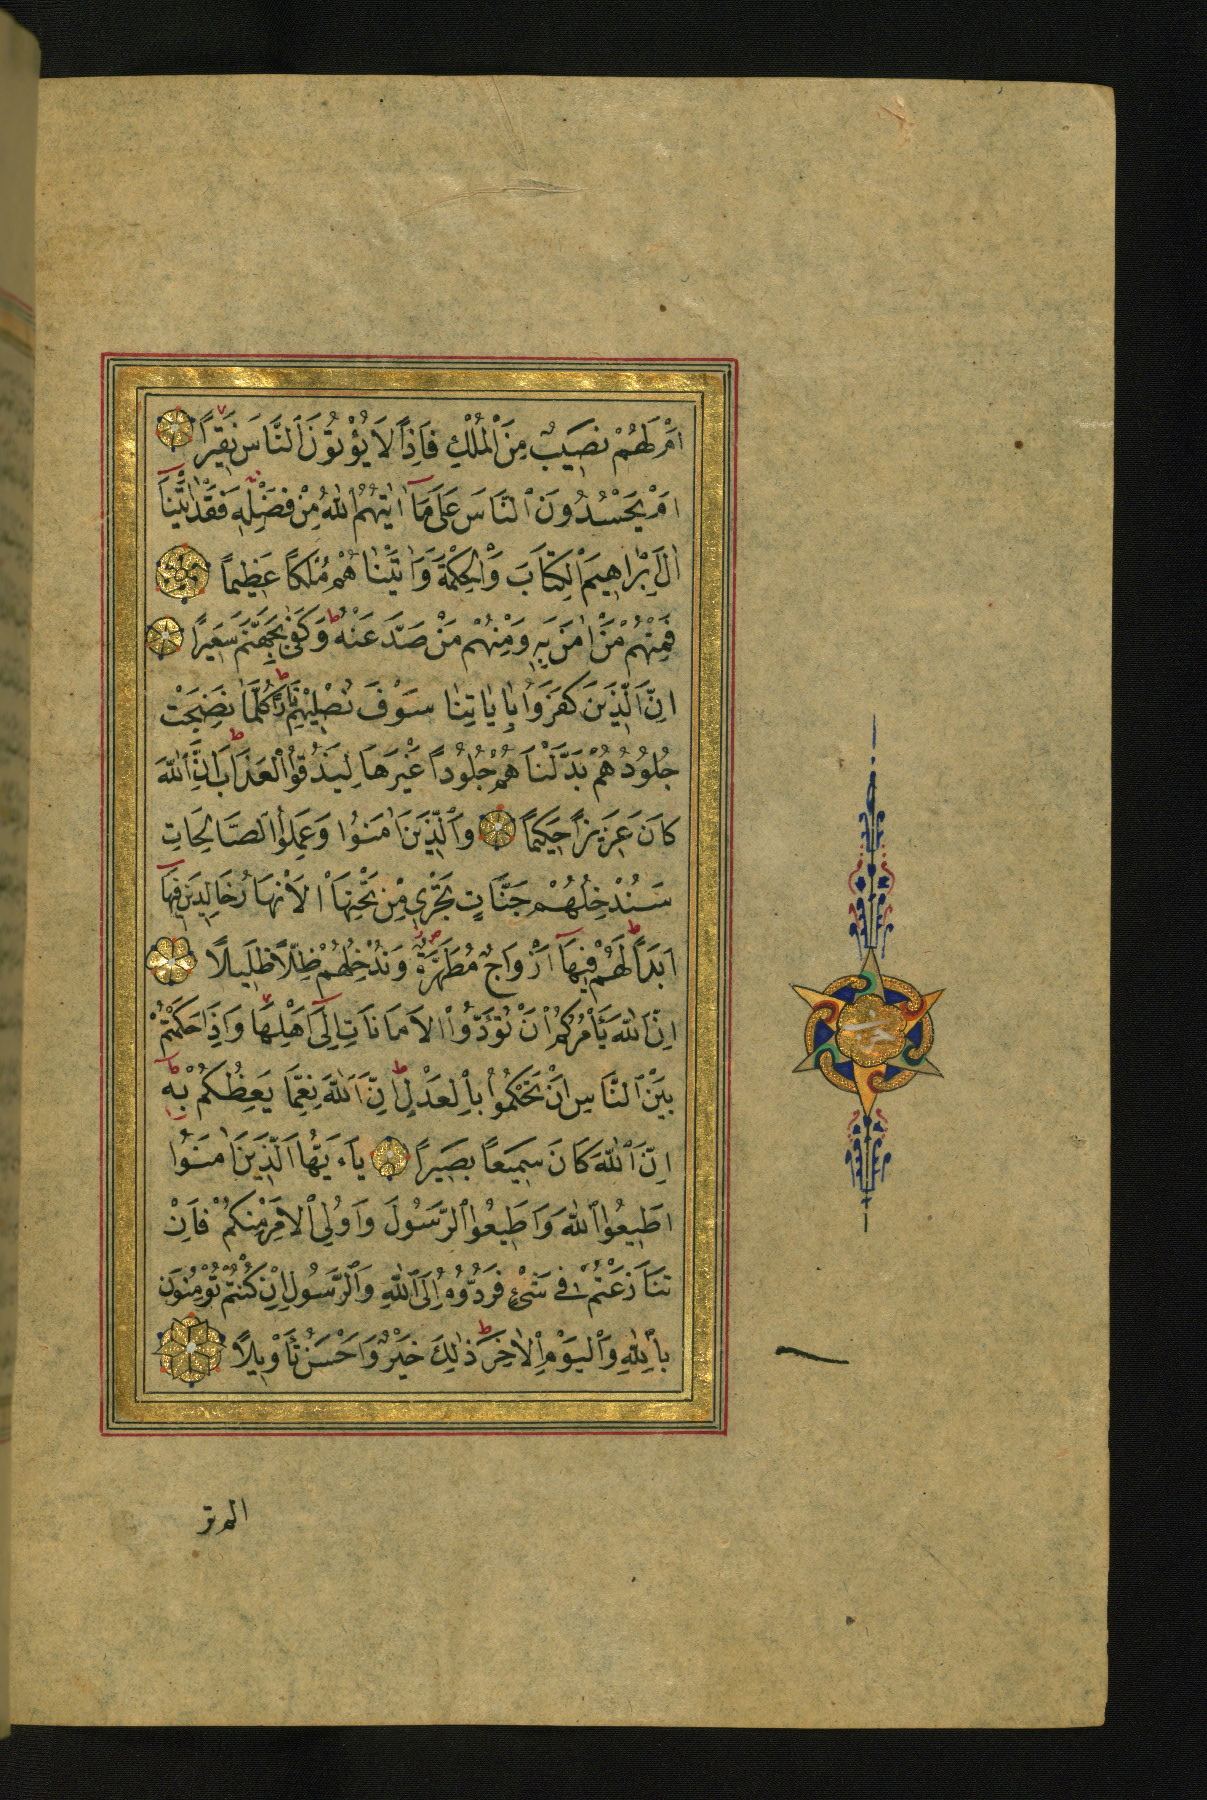 اَمْ لَهُمْ نَصِيبٌ مِنَ الْمُلْكِ فَاِذًا لَا يُؤْتُونَ النَّاسَ نَقِيرًا
اَمْ يَحْسُدُونَ النَّاسَ عَلٰى مَآ اٰتٰيهُمُ اللّٰهُ مِنْ فَضْلِهٖ فَقَدْ اٰتَيْنَآ
اٰلَ اِبْرٰاهِيمَ الْكِتَابَ وَالْحِكْمَةَ وَاٰتَيْنَاهُمْ مُلْكًا عَظِيمًا
فَمِنْهُمْ مَنْ اٰمَنَ بِهٖ وَمِنْهُمْ مَنْ صَدَّ عَنْهُ ط وَكَفٰى بِجَهَنَّمَ سَعِيرًا
اِنَّ الَّذِينَ كَفَرُوا بِاٰيَاتِنَا سَوْفَ نُصْلِيهِمْ نَارًا ط كُلَّمَا نَضِجَتْ
جُلُودُهُمْ بَدَّلْنَاهُمْ جُلُودًا غَيْرَهَا لِيَذُقُوا الْعَذَابَ ط اِنَّ اللّٰهَ
كَانَ عَزِيزًا حَكِيمًا وَالَّذِينَ اٰمَنُوا وَعَمِلُوا الصَّالِحَاتِ
سَنُدْخِلُهُمْ جَنَّاتٍ تَجْرِي مِنْ تَحْتِهَا الْاَنْهَارُ خَالِدِينَ فِيهَآ
اَبَدًا ط لَهُمْ فِيهَآ اَزْوَاجٌ مُطَهَّرَةٌ وَنُدْخِلُهُمْ ظِلًّا ظَلِيلًا
اِنَّ اللّٰهَ يَاْمُرُكُمْ اَنْ تُؤَدُّوا الْاَمَانَاتِ اِلٰٓى اَهْلِهَا وَاِذَا حَكَمْتُمْ
بَيْنَ النَّاسِ اَنْ تَحْكُمُوا بِالْعَدْلِ ط اِنَّ اللّٰهَ نِعِمَّا يَعِظُكُمْ بِهٖ ط
اِنَّ اللّٰهَ كَانَ سَمِيعًا بَصِيرًا يَاءَيُّهَا الَّذِينَ اٰمَنُوا
اَطِيعُوا اللّٰهَ وَاَطِيعُوا الرَّسُولَ وَاُولِي الْاَمْرِ مِنْكُمْ فَاِنْ
تَنَازَعْتُمْ فِي شَيْءٍ فَرُدُّوهُ اِلَى اللّٰهِ وَالرَّسُولِ اِنْ كُنْتُمْ تُؤْمِنُونَ
بِاللّٰهِ وَالْيَوْمِ الْاٰخِرِ ط ذٰلِكَ خَيْرٌ وَاَحْسَنُ تَاْوِيلًا
الم تر